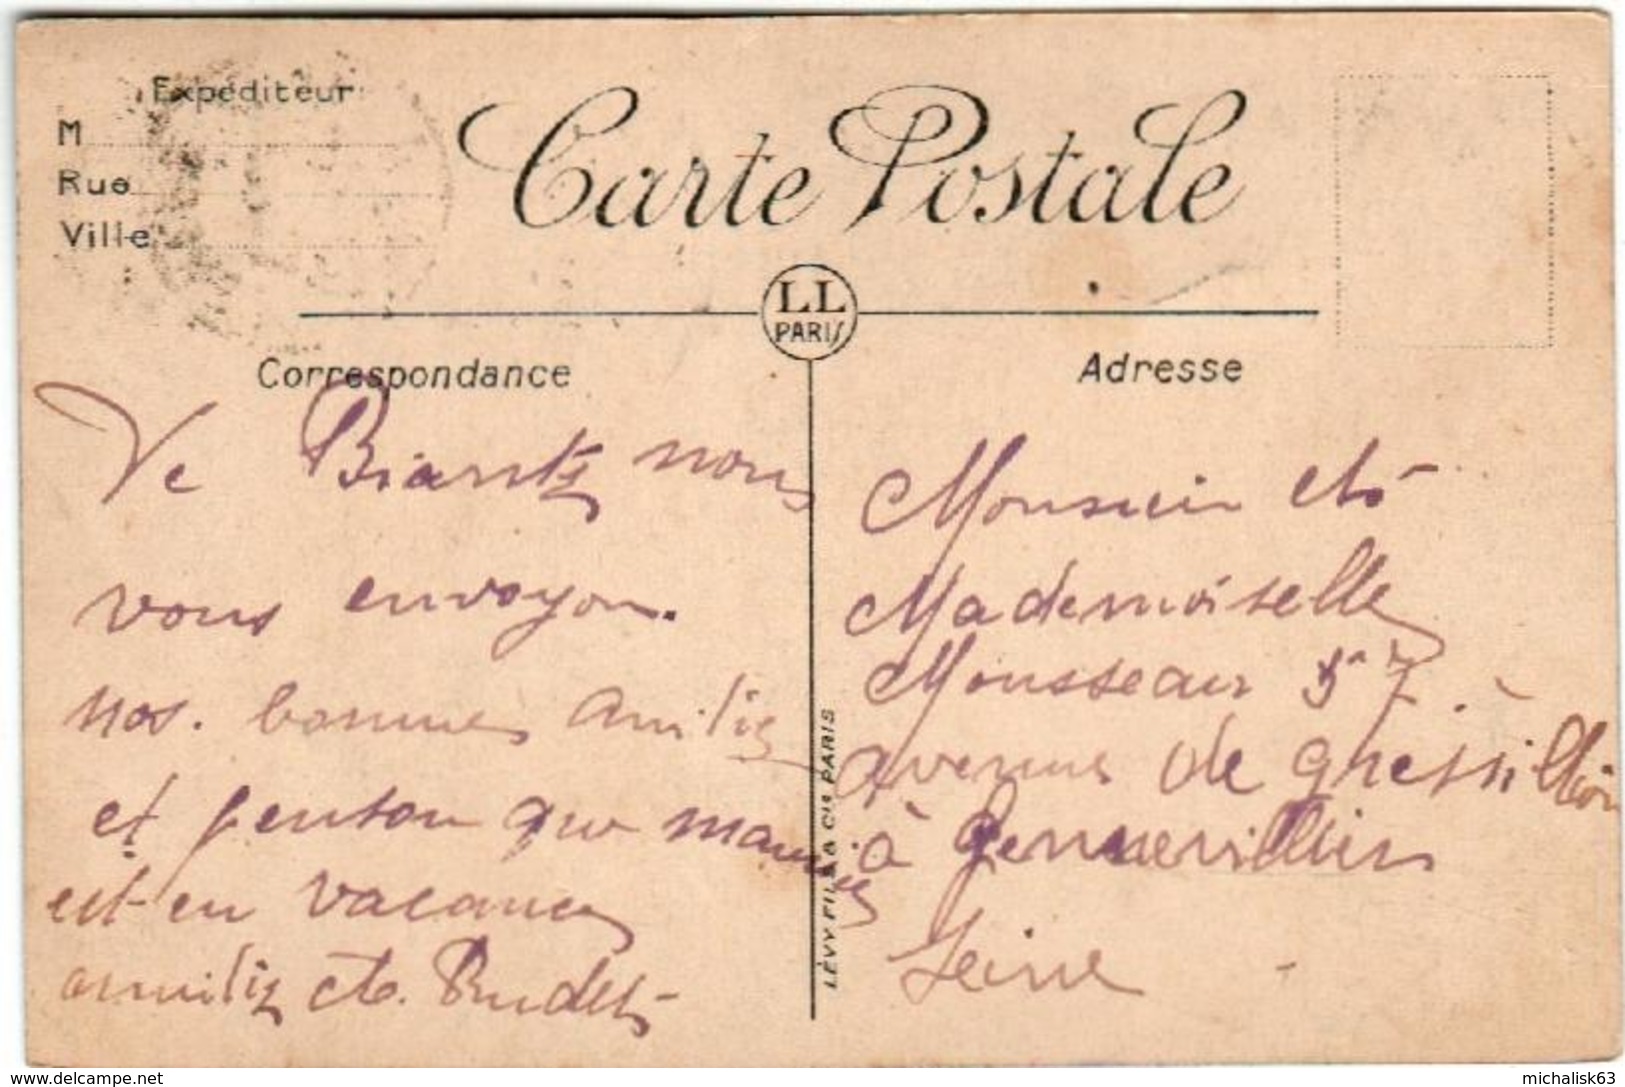 Expéditeur
M
Rue
Ville
Carte Postale
LL
PARIS
Correspondance
Adresse
De Biarritz nous
vous envoyon.
nos. bonnes amitiz
et penson que maurie
est en vacances
amitiz et
LÉVY FILS & Cie PARIS
Monsieur et
Mademoiselle
Mousseau 57
avenue de
à Gennevillier
Seine
www.delcampe.net
michalisk63